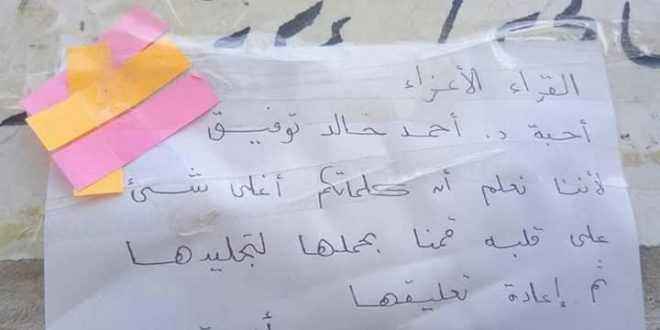 القراء الأعزاء
أحبة د. أحمد خالد توفيق
لأننا نعلم أن كلماتكم أغلى شئ
على قلبه قمنا بحملها لتجليدها
ثم إعادة تعليقها